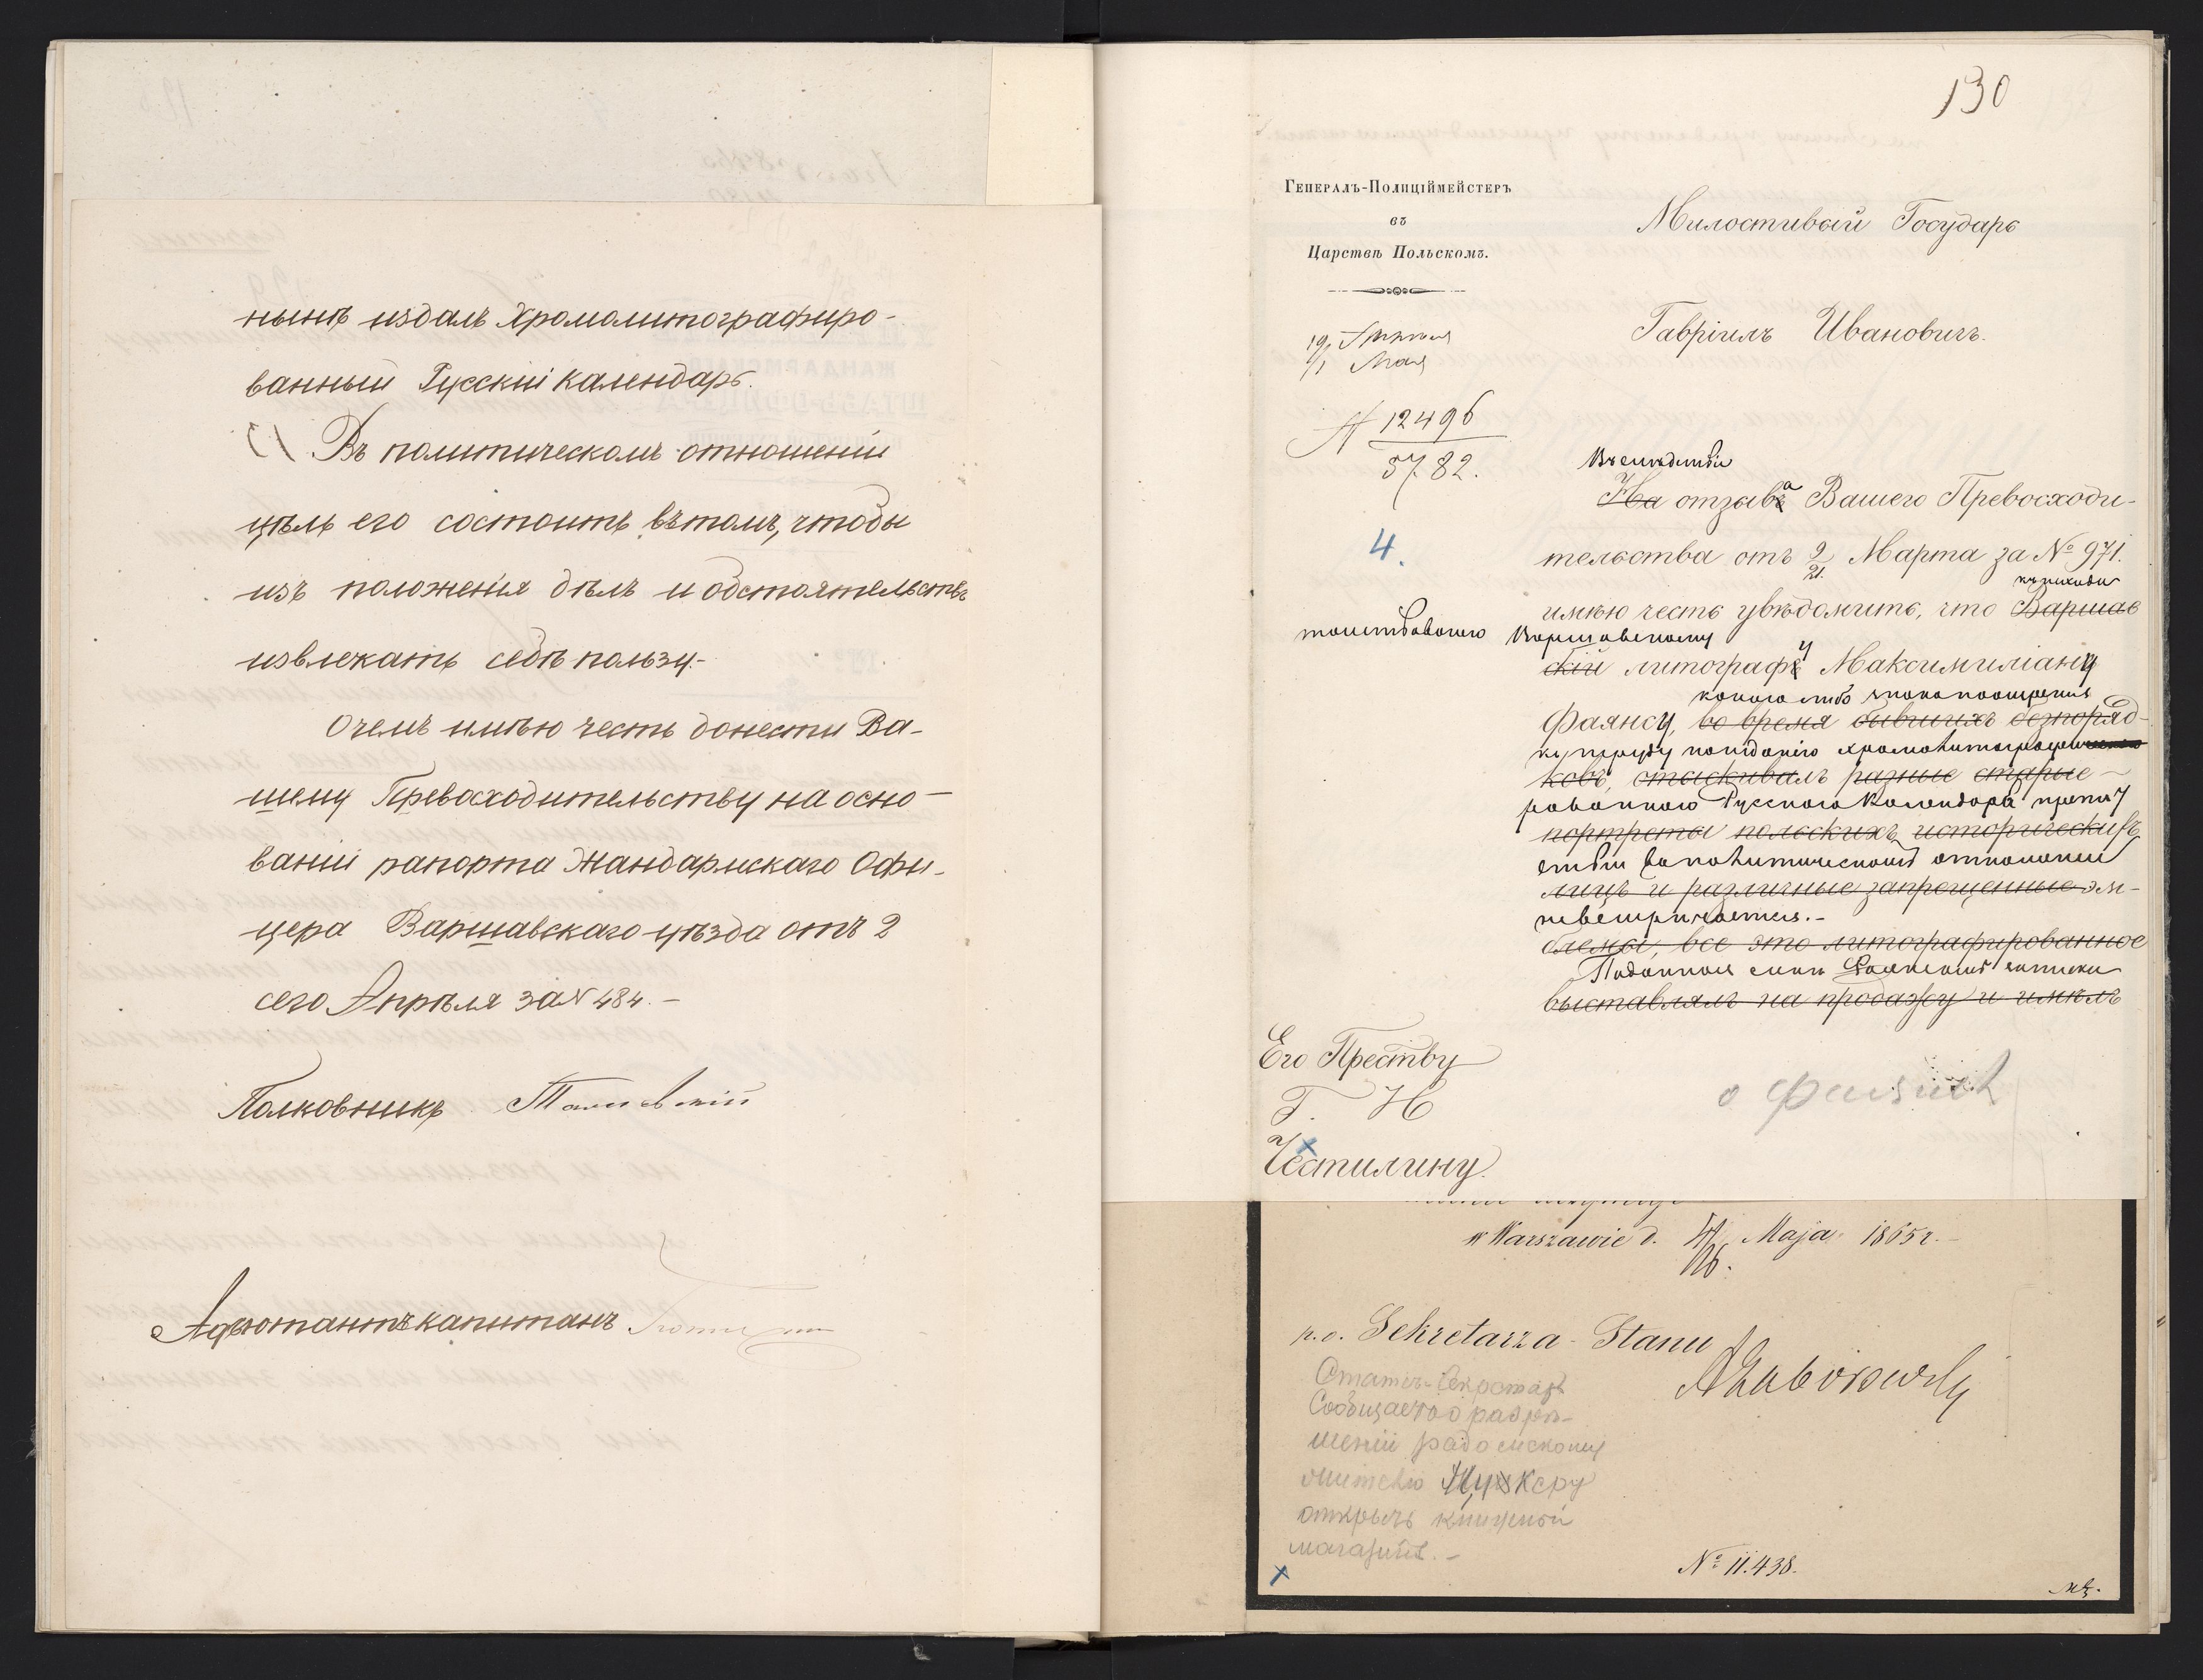 нынѣ издалъ Хромолитографиро-
ванный Русскій календарь.
Въ политическомъ отношеніи
цѣль его состоитъ въ томъ, чтобы
изъ положенія дѣлъ и обстоятельствъ
извлекать себѣ пользу.-
Очемъ имѣю честь донести Ва-
шему Превосходительству на осно-
ваніи рапорта Жандармскаго Офи-
цера Варшавскаго уѣзда отъ 2
сего Апрѣля за N 484. -
Полковникъ
Адъютантъ капитанъ
130
Генералъ-Полиціймейстеръ
въ
Царствѣ Польскомъ.
19 Апрѣля
1 Мая
N 12496
5782.
4.
Милостивый Государь
Гавріилъ Ивановичъ.
Вслѣдствіе
На отзыва Вашего Превосходи-
тельства отъ 9/21 Марта за № 971.
имѣю честь увѣдомить, что Варшав
Варшавскому
скій литографу Максимиліану
Фаянсу, во время бывшихъ безпоряд-
ковъ, отыскивалъ разные старые
рованного Русского Календаря препят
портреты польскихъ историческихъ
ствій въ политическомъ отношеніи
лицъ и различные запрещенные эм-
невстрѣчается. -
блемы, все это литографированное
выставлялъ на продажу и имѣлъ
Его Преству
Г. И
Честилину.
о Фаянсѣ
w Warszawie d. 4/16 Maja 1865 r. -
p.o. Sekretarza Stanu
Статсъ-Секретарь
Сообщаетъ о разрѣ-
шеніи радомскому
жителю Цукеру
открыть книжный
магазинъ. -
№ 11.438.